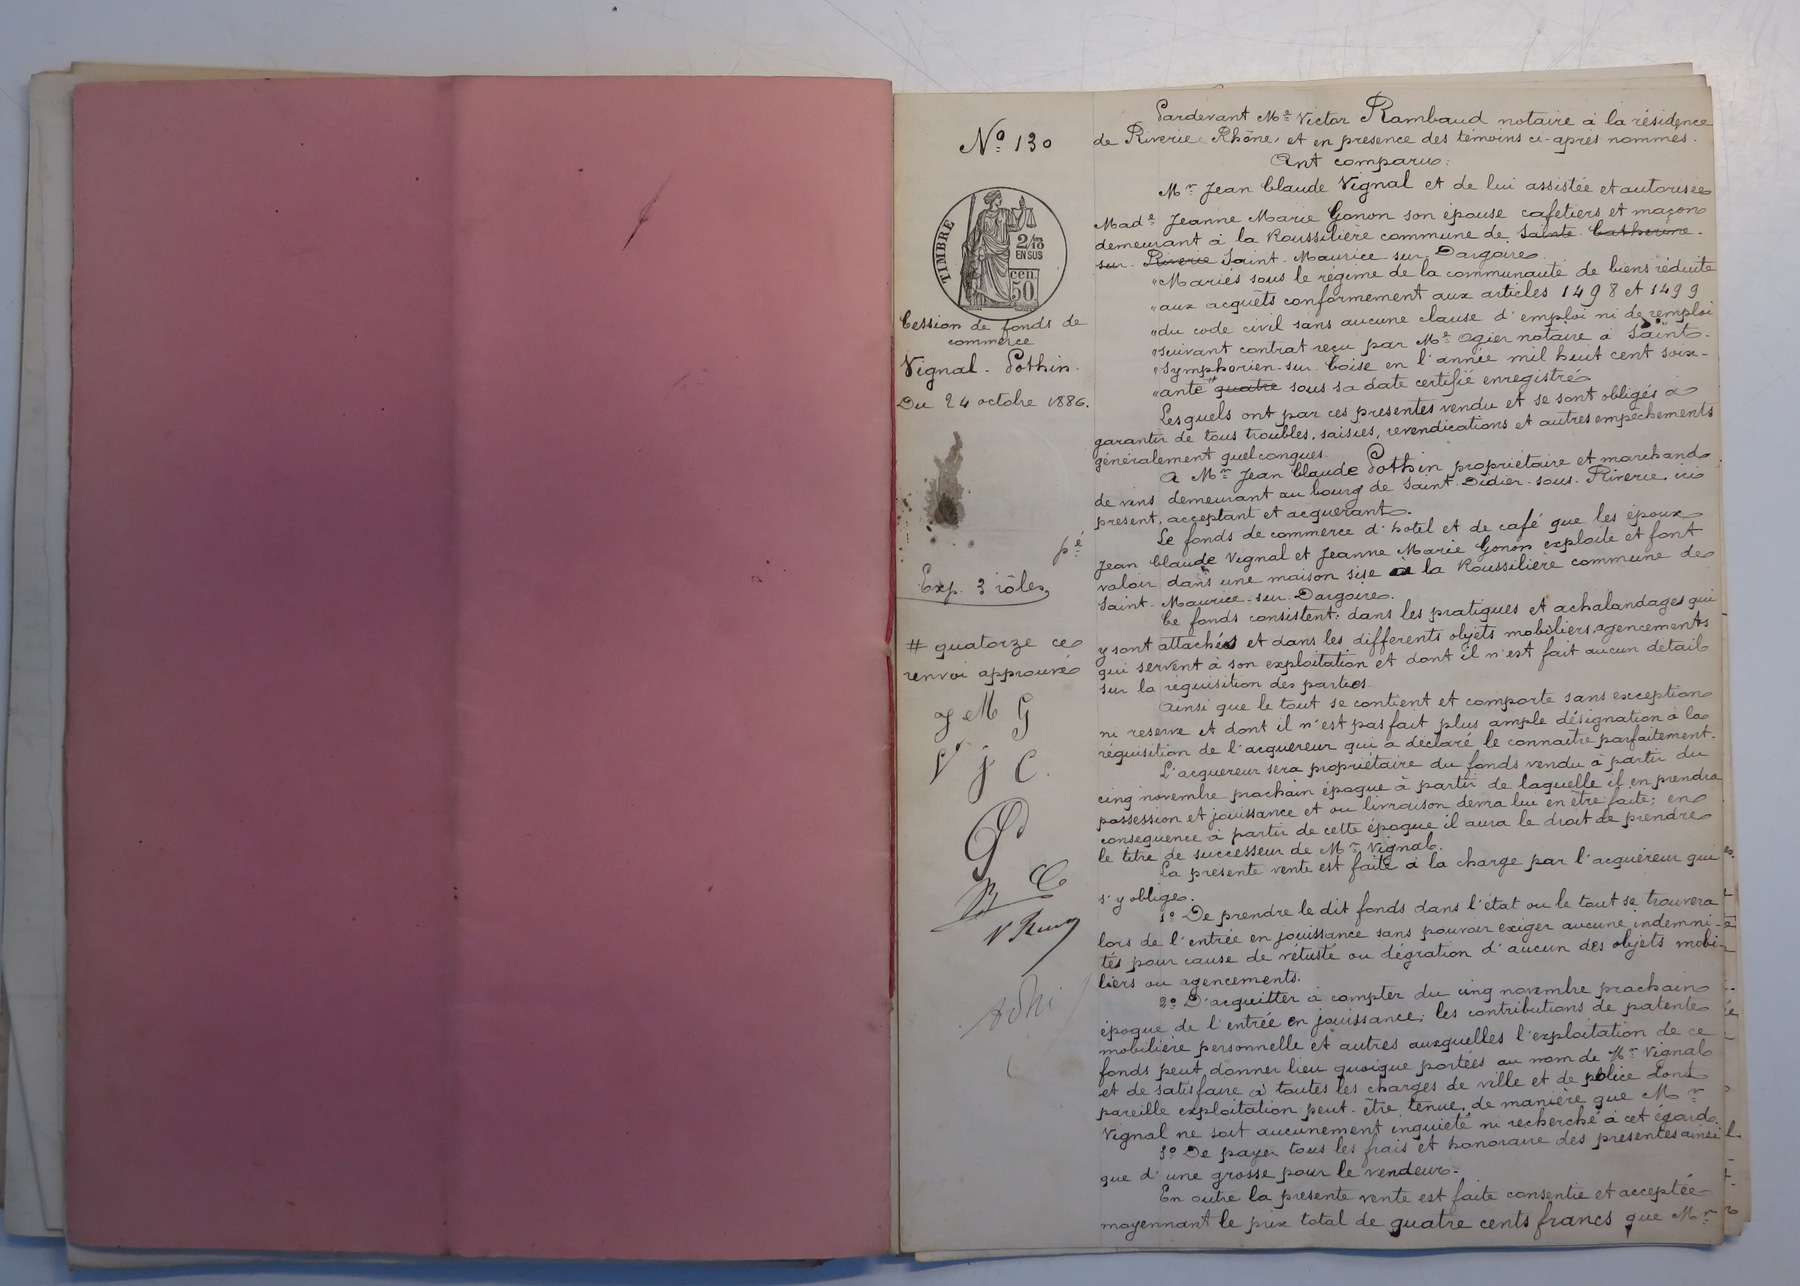 Nº 130
TIMBRE
2/10
EN SUS
cen.
50
Cession de fonds de
commerce
Vignal - Pothin.
Du 24 octobre 1886.
pé
Exp. 3 rôles
# quatorze ce
renvoi approuvé
J M G
V J C.
Pardevant Me Victor Rambaud notaire à la résidence
de Riverie (Rhône) et en presence des témoins ci-après nommés.
Ont comparu:
Mr Jean Claude Vignal et de lui assistée et autorisée
Made Jeanne Marie Gonon son épouse cafetiers et maçon
demeurant à la Roussilière commune de Sainte Catherine
sur Riverie Saint-Maurice-sur-Dargoire.
"Mariés sous le régime de la communauté de biens réduite
"aux acquêts conformement aux articles 1498 et 1499
"du code civil sans aucune clause d'emploi ni de remploi
"suivant contrat reçu par Me Ogier notaire à Saint-
"Symphorien-sur-Coise en l'année mil huit cent soix-
"ante # quatre sous sa date certifié enregistré
Lesquels ont par ces présentes vendu et se sont obligés à
garantir de tous troubles, saisies, revendications et autres empêchements
généralement quelconques.
A Mr Jean Claude Pothin propriétaire et marchand
de vins demeurant au bourg de Saint-Didier-sous-Riverie, ici
present, acceptant et acquerant.
Le fonds de commerce d'hotel et de café que les époux
Jean Claude Vignal et Jeanne Marie Gonon exploite et font
valoir dans une maison sise à la Roussilière commune de
Saint-Maurice-sur-Dargoire.
Ce fonds consistent: dans les pratiques et achalandages qui
y sont attachés et dans les differents objets mobiliers, agencements
qui servent à son exploitation et dont il n'est fait aucun détail
sur la réquisition des parties.
Ainsi que le tout se contient et comporte sans exception
ni reserve et dont il n'est pas fait plus ample désignation à la
réquisition de l'acquereur qui a déclaré le connaître parfaitement.
L'acquereur sera propriétaire du fonds vendu à partir du
cinq novembre prochain époque à partir de laquelle il en prendra
possession et jouissance et ou livraison devra lui en être faite; en
consequence à partir de cette époque il aura le droit de prendre
le titre de successeur de Mr Vignal.
La présente vente est faite à la charge par l'acquéreur qui
s'y oblige.
1º De prendre le dit fonds dans l'état ou le tout se trouvera
lors de l'entrée en jouissance sans pouvoir exiger aucune indemni-
tés pour cause de vétusté ou dégration d'aucun des objets mobi-
liers ou agencements.
2º D'acquitter à compter du cinq novembre prochain
époque de l'entrée en jouissance; les contributions de patente
mobilière personnelle et autres auxquelles l'exploitation de ce
fonds peut donner lieu quoique portées au nom de Mr Vignal
et de satisfaire à toutes les charges de ville et de police dont
pareille exploitation peut-être tenue, de manière que Mr
Vignal ne soit aucunement inquiété ni recherché à cet égard.
3º De payer tous les frais et honoraire des présentes ainsi
que d'une grosse pour le vendeur.
En outre la présente vente est faite consentie et acceptée
moyennant le prix total de quatre cents francs que Mr